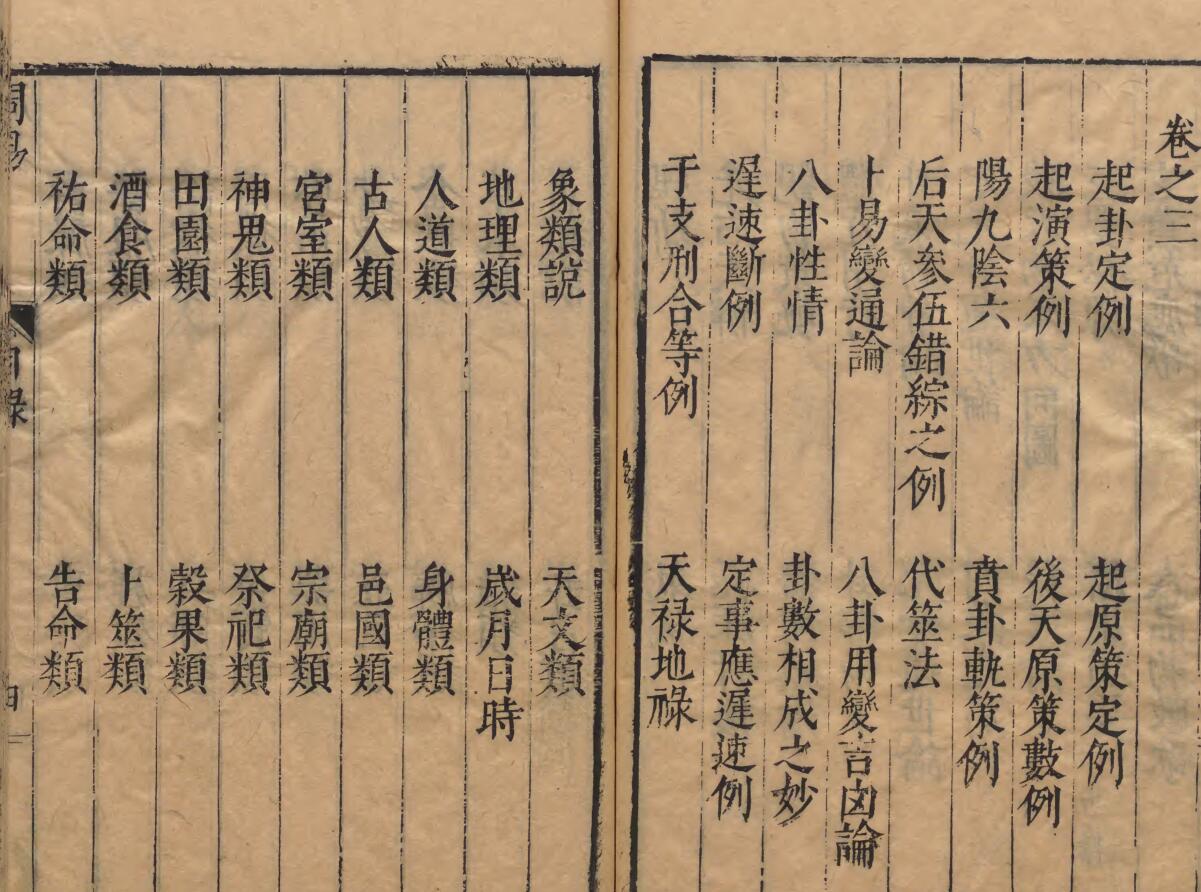 卷之三
起卦定例　起原策定例
起演策例　後天原策數例
陽九陰六　賁卦軌策例
后天參伍錯綜之例　代筮法
卜易變通論　八卦用變吉凶論
八卦性情　卦數相成之妙
遲速斷例　定事應遲速例
干支刑合等例　天禄地祿
象類說　天文類
地理類　歲月日時
人道類　身體類
古人類　邑國類
宮室類　宗廟類
神鬼類　祭祀類
田園類　穀果類
酒食類　卜筮類
祐命類　告命類
目錄　四